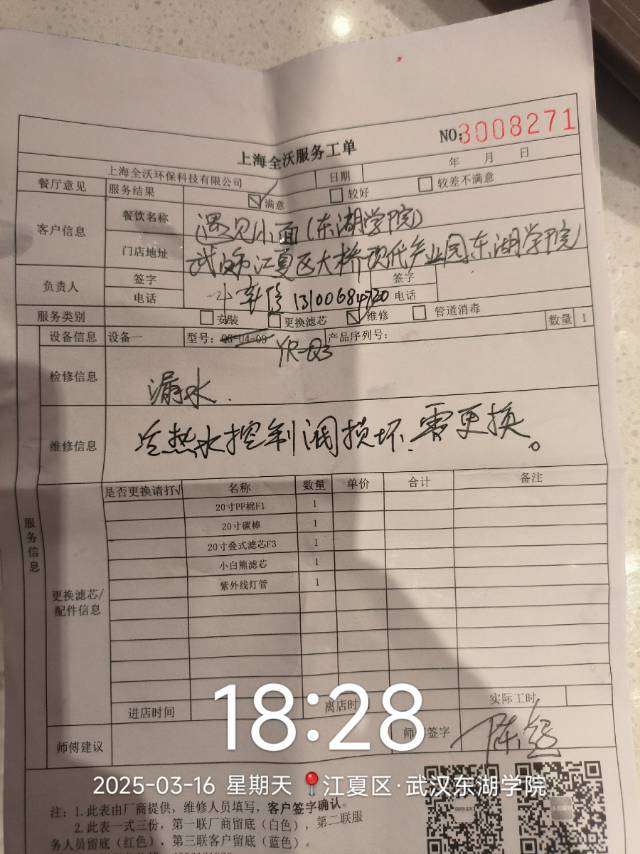 上海全沃服务工单
NO:3008271
上海全沃环保科技有限公司 日期 年 月 日
餐厅意见 服务结果 满意 较好 较差不满意
客户信息 餐饮名称 遇见小面(东湖学院)
门店地址 武汉市江夏区大桥现代产业园东湖学院
负责人 签字 签字
电话 13100684720 电话
服务类别 安装 更换滤芯 维修 管道消毒
设备信息 设备一 型号: 08-04-09 YR-Q3 产品序列号: 数量 1
检修信息 漏水.
维修信息 冷热水控制阀损坏.需更换。
服务信息
是否更换请打√ 名称 数量 单价 合计 备注
20寸PP棉F1 1
20寸碳棒 1
20寸叠式滤芯F3 1
小白熊滤芯 1
紫外线灯管 1
更换滤芯/配件信息
进店时间 离店时 实际工时
18:28
师傅建议 签字
2025-03-16 星期天 江夏区·武汉东湖学院
注: 1.此表由厂商提供，维修人员填写，客户签字确认。
2.此表一式三份，第一联厂商留底（白色），第二联服
务人员留底（红色），第三联客户留底（蓝色）。